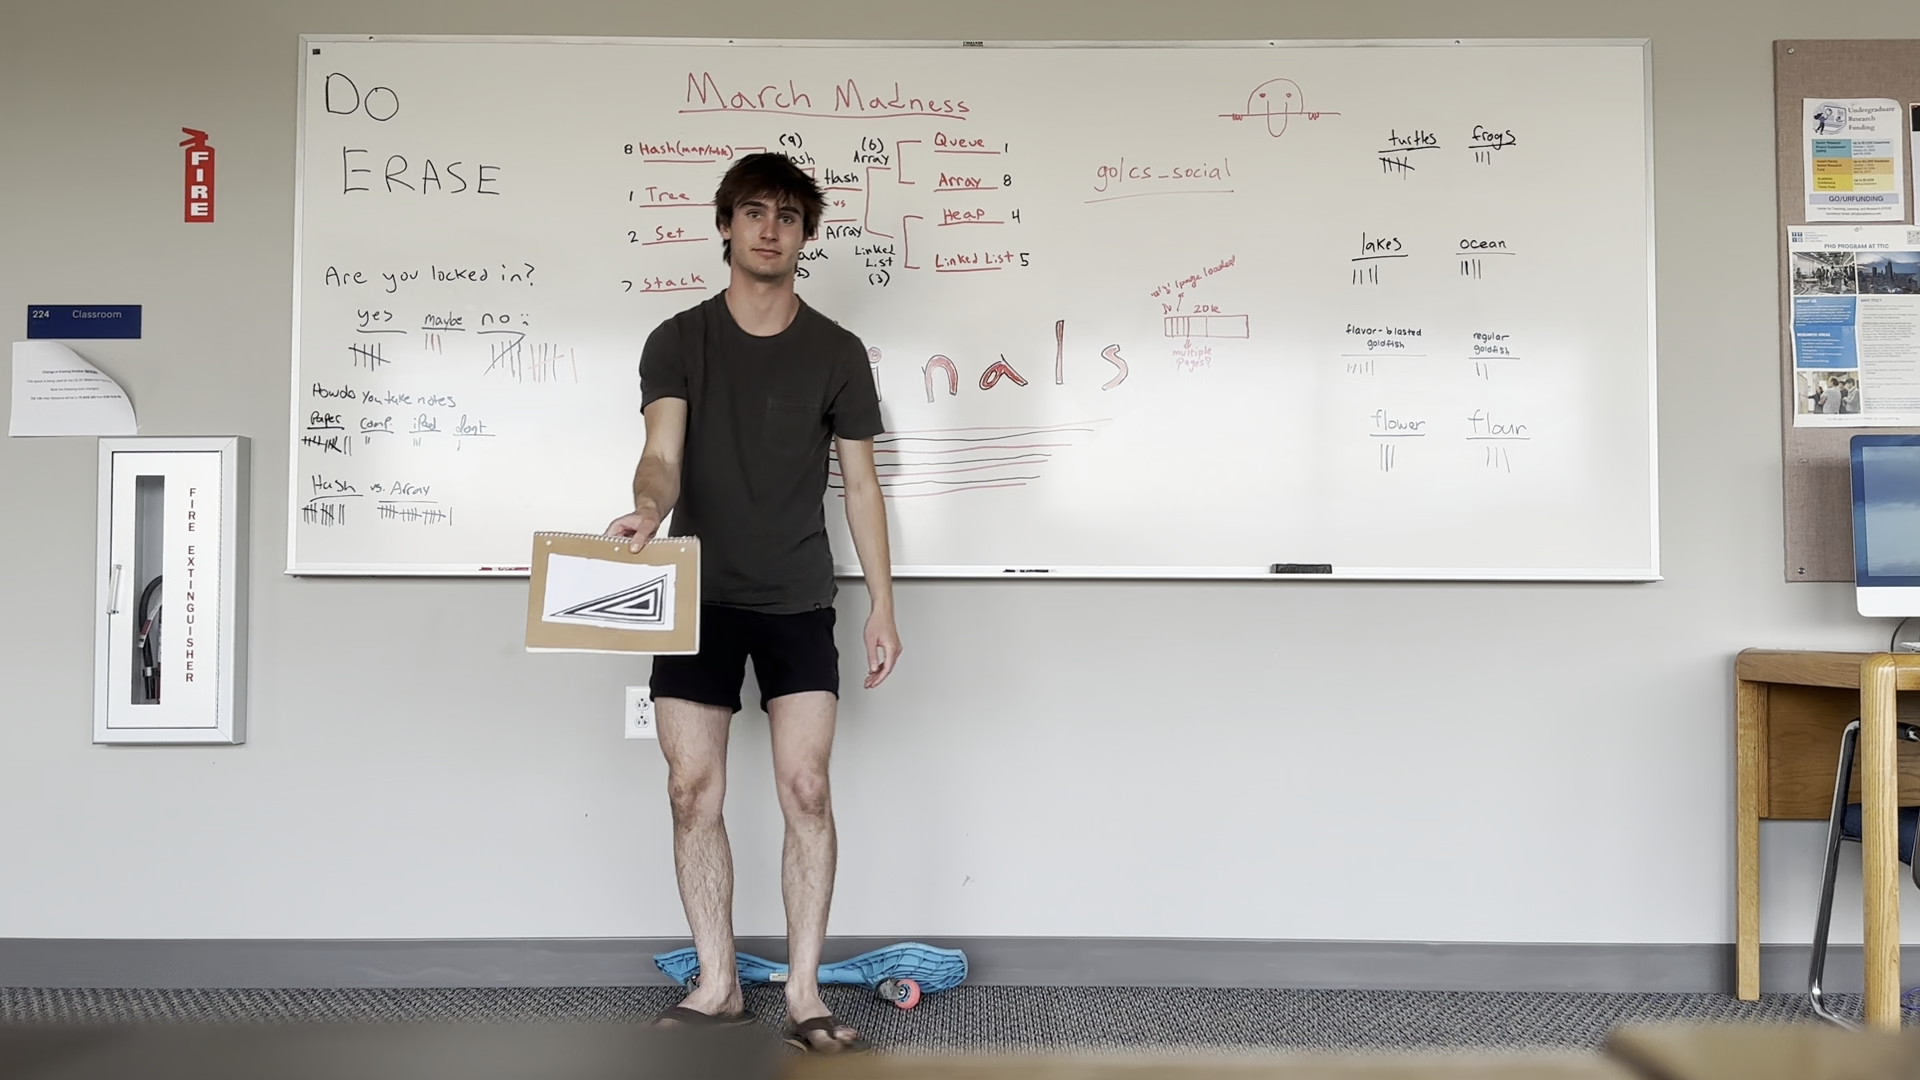 DO
ERASE
Are you locked in?
yes maybe no :
How do you take notes
Paper comp. iPad dont
Hash vs. Array
March Madness
8 Hash (map/table)
1 Tree
2 Set
7 Stack
(9)
Hash
vs
Array
(6)
Array
Linked
List
(3)
Queue 1
Array 8
Heap 4
Linked List 5
nals
go/cs_social
1 page loaded!
20k
multiple
pages?
turtles frogs
lakes ocean
flavor-blasted
goldfish
regular
goldfish
flower flour
FIRE
224 Classroom
FIRE EXTINGUISHER
Undergraduate
Research
Funding
GO/URFUNDING
PHD PROGRAM AT TTIC